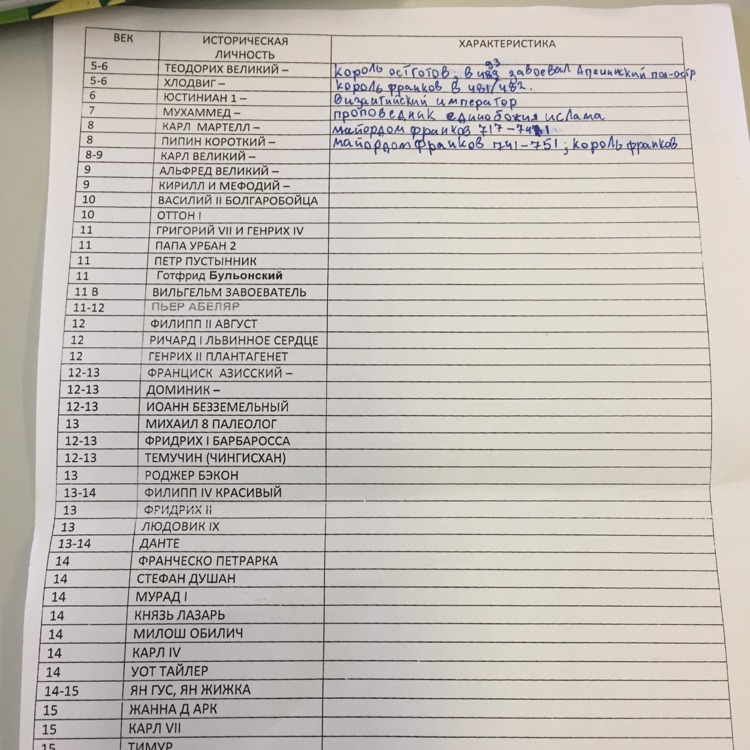 ВЕК ИСТОРИЧЕСКАЯ ЛИЧНОСТЬ ХАРАКТЕРИСТИКА
5-6 ТЕОДОРИХ ВЕЛИКИЙ – король остготов; в 493 завоевал Апенинский пол-остр
5-6 ХЛОДВИГ – король франков в 481/482.
6 ЮСТИНИАН 1 – византийский император
7 МУХАММЕД – проповедник единобожия ислама
8 КАРЛ МАРТЕЛЛ – майордом франков 717–741
8 ПИПИН КОРОТКИЙ – майордом франков 741–751; король франков
8-9 КАРЛ ВЕЛИКИЙ –
9 АЛЬФРЕД ВЕЛИКИЙ –
9 КИРИЛЛ И МЕФОДИЙ –
10 ВАСИЛИЙ II БОЛГАРОБОЙЦА
10 ОТТОН I
11 ГРИГОРИЙ VII И ГЕНРИХ IV
11 ПАПА УРБАН 2
11 ПЕТР ПУСТЫННИК
11 Готфрид Бульонский
11 В ВИЛЬГЕЛЬМ ЗАВОЕВАТЕЛЬ
11-12 ПЬЕР АБЕЛЯР
12 ФИЛИПП II АВГУСТ
12 РИЧАРД I ЛЬВИННОЕ СЕРДЦЕ
12 ГЕНРИХ II ПЛАНТАГЕНЕТ
12-13 ФРАНЦИСК АЗИССКИЙ –
12-13 ДОМИНИК –
12-13 ИОАНН БЕЗЗЕМЕЛЬНЫЙ
13 МИХАИЛ 8 ПАЛЕОЛОГ
12-13 ФРИДРИХ I БАРБАРОССА
12-13 ТЕМУЧИН (ЧИНГИСХАН)
13 РОДЖЕР БЭКОН
13-14 ФИЛИПП IV КРАСИВЫЙ
13 ФРИДРИХ II
13 ЛЮДОВИК IX
13-14 ДАНТЕ
14 ФРАНЧЕСКО ПЕТРАРКА
14 СТЕФАН ДУШАН
14 МУРАД I
14 КНЯЗЬ ЛАЗАРЬ
14 МИЛОШ ОБИЛИЧ
14 КАРЛ IV
14 УОТ ТАЙЛЕР
14-15 ЯН ГУС, ЯН ЖИЖКА
15 ЖАННА Д АРК
15 КАРЛ VII
15 ТИМУР